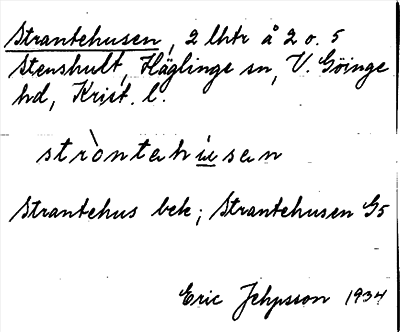 Strantehusen, 2 lhtr å 2 o. 5
Stenshult, Häglinge sn, V. Göinge
hd, Krist. l.
stròntahu̲san
Strantehus bek; Strantehusen G5
Eric Jepsson 1934